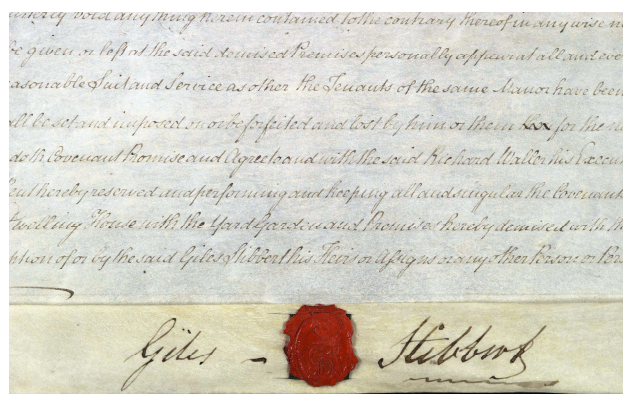 utterly void any thing herein contained to the contrary thereof in any wise
be given or left at the said demised Premises personally appear at all and
easonable Suit and Service as other the Tenants of the same Manor have been
all be set and imposed on or be forfeited and lost by him or them for the
doth Covenant Promise and Agree to and with the said Richard Waller his Execu
Rent hereby reserved and performing and keeping all and singular the Covenants
Dwelling House with the Yard Garden and Premises hereby demised with
ption of or by the said Giles Stibbert his Heirs or Assigns or any other Person or Per
Giles - Stibbert